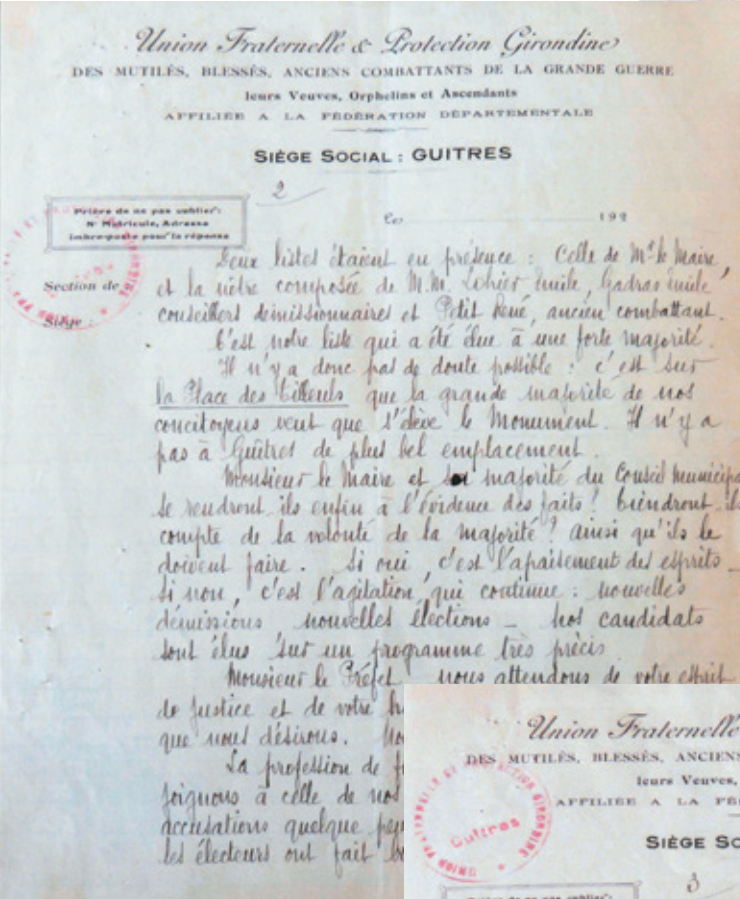 Union Fraternelle & Protection Girondine
DES MUTILÉS, BLESSÉS, ANCIENS COMBATTANTS DE LA GRANDE GUERRE
leurs Veuves, Orphelins et Ascendants
AFFILIÉE A LA FÉDÉRATION DÉPARTEMENTALE
SIÈGE SOCIAL : GUITRES
2
Prière de ne pas oublier :
N° Matricule, Adresse
timbre-poste pour la réponse
Le 192
Section de
Siège :
Deux listes étaient en présence : Celle de Mr le Maire,
et la nôtre composée de M.M. Émile, Gadras Émile
conseillers démissionnaires et Petit René, ancien combattant.
C'est notre liste qui a été élue à une forte majorité.
Il n'y a donc pas de doute possible : c'est sur
la Place des Tilleuls que la grande majorité de nos
concitoyens veut que s'élève le Monument. Il n'y a
pas à Guîtres de plus bel emplacement.
Monsieur le Maire et sa majorité du Conseil municipa
se rendront-ils enfin à l'évidence des faits ? Tiendront-ils
compte de la volonté de la majorité ? ainsi qu'ils le
doivent faire. Si oui, c'est l'apaisement des esprits _
Si non, c'est l'agitation qui continue : nouvelles
démissions nouvelles élections _ Nos candidats
sont élus sur un programme très précis
Monsieur le Préfet nous attendons de votre esprit
de justice et de votre
que nous désirons.
La profession de
joignons à celle de nos
accusations quelque
les électeurs ont fait
Union Fraternelle
DES MUTILÉS, BLESSÉS, ANCIENS
leurs Veuves,
AFFILIÉE A LA FÉ
UNION FRATERNELLE ET PROTECTION GIRONDINE
Guitres
SIÈGE SO
3
Prière de ne pas oublier :